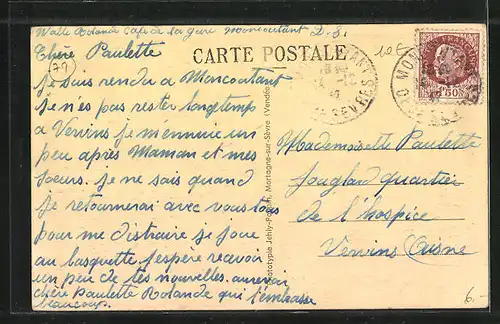 Watte Rolande Café de la gare moncoutant D.S.
Chère Paulette
CARTE POSTALE
10€
79
je suis rendu a Moncoutant
je n'es pas rester longtemp
a Vervins je m'ennuie un
peu après Maman et mes
soeurs. je ne sais quand
je retournerai avec vous tous
pour me distraire je joue
au basquette j'espère recevoir
un peu de tes nouvelles. aurevoir
chère Paulette Rolande qui t'embrasse
beaucoup.
Phototypie Jehly-Poupin, Mortagne-sur-Sèvre (Vendée)
Mademoiselle Paulette
Jouglard quartier
de l'hospice
Vervins Aisne
1F50
6.-